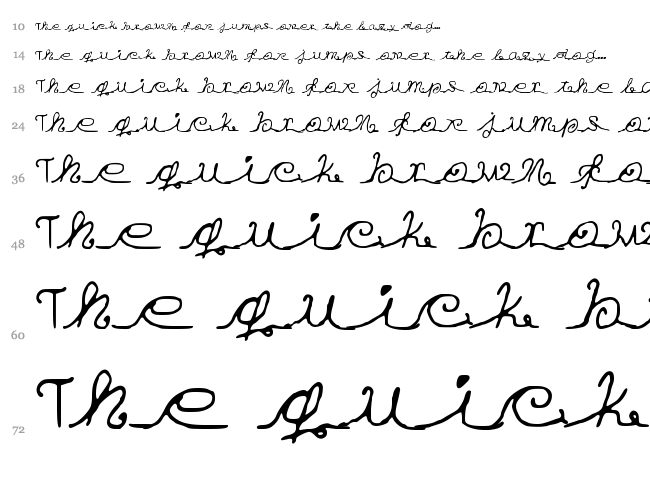 10 The quick brown fox jumps over the lazy dog...
14 The quick brown fox jumps over the lazy dog...
18 The quick brown fox jumps over the la
24 The quick brown fox jumps o
36 The quick brown fo
48 The quick brow
60 The quick br
72 The quick